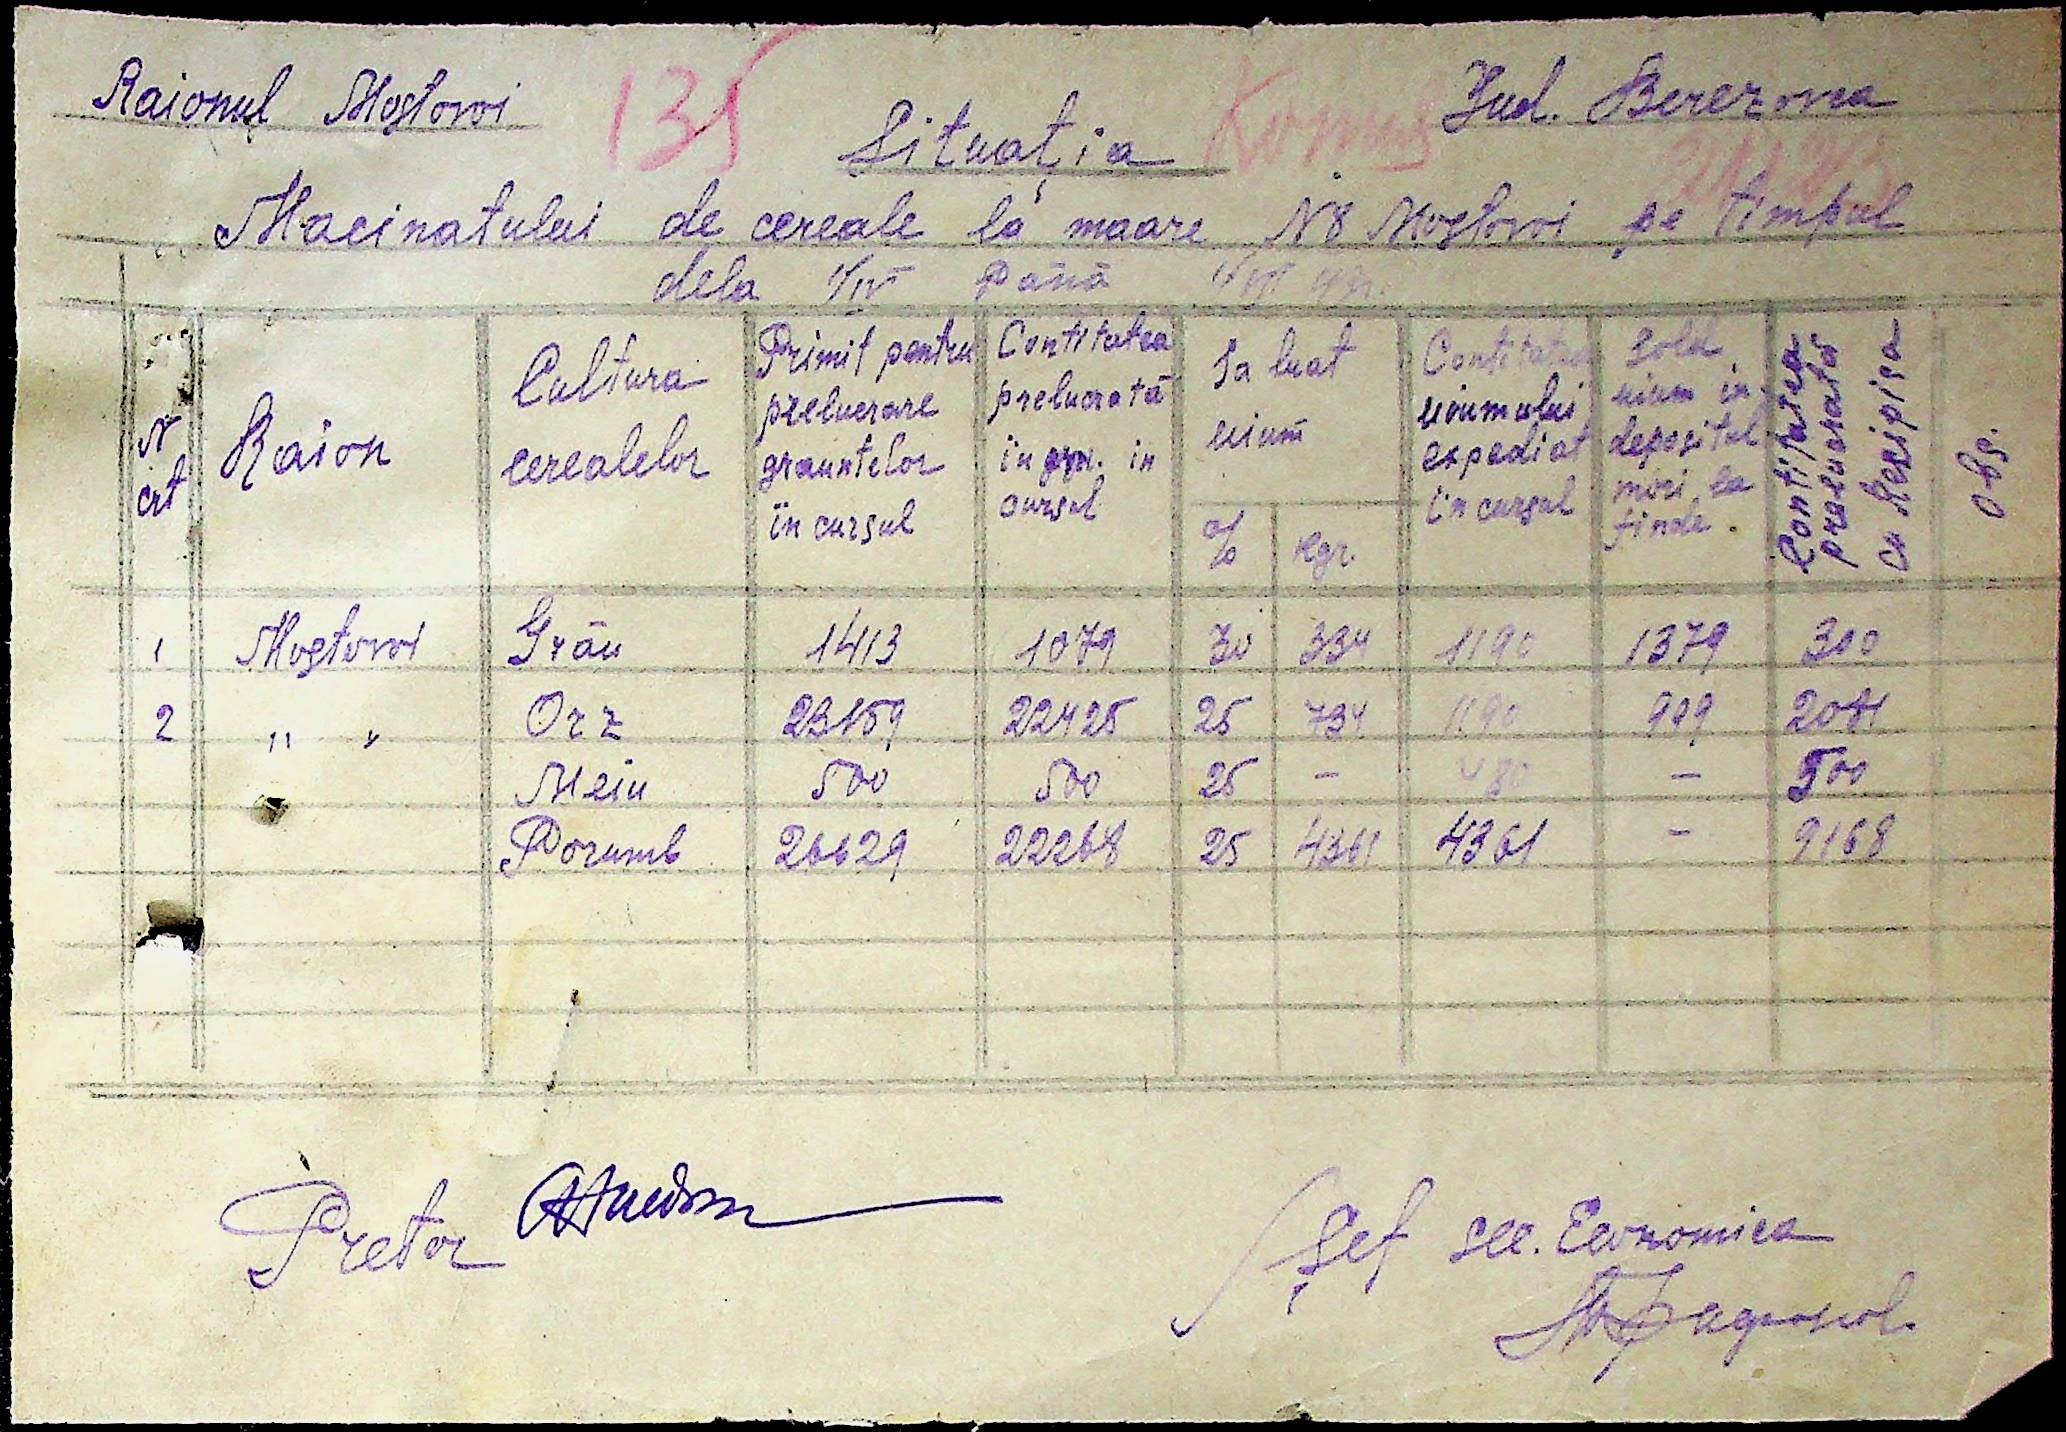 Raionul Mostovoi
135
Jud. Berezovca
Situaţia
Macinatului de cereale la moare N8 Mostovoi pe timpul
dela 1/IV Până
N crt
Raion
Cultura cerealelor
Primit pentru prelucrare grauntelor în cursul
Contitatea prelucrată în gr. in cursul
Sa luat uium
%
kgr.
Contitatea uiumului expediat în cursul
Sold uium in depozitul mori la finele.
Contitatea prelucrată cu Recipisa
Obs.
1 Mostovoi Grâu 1413 1079 30 334 1190 1379 300
2 " " Orz 23159 22425 25 734 1190 999 2081
Meiu 500 500 25 – 480 – 500
" Porumb 26629 22268 25 4361 4361 – 9168
Pretor
Şef sec. Economica